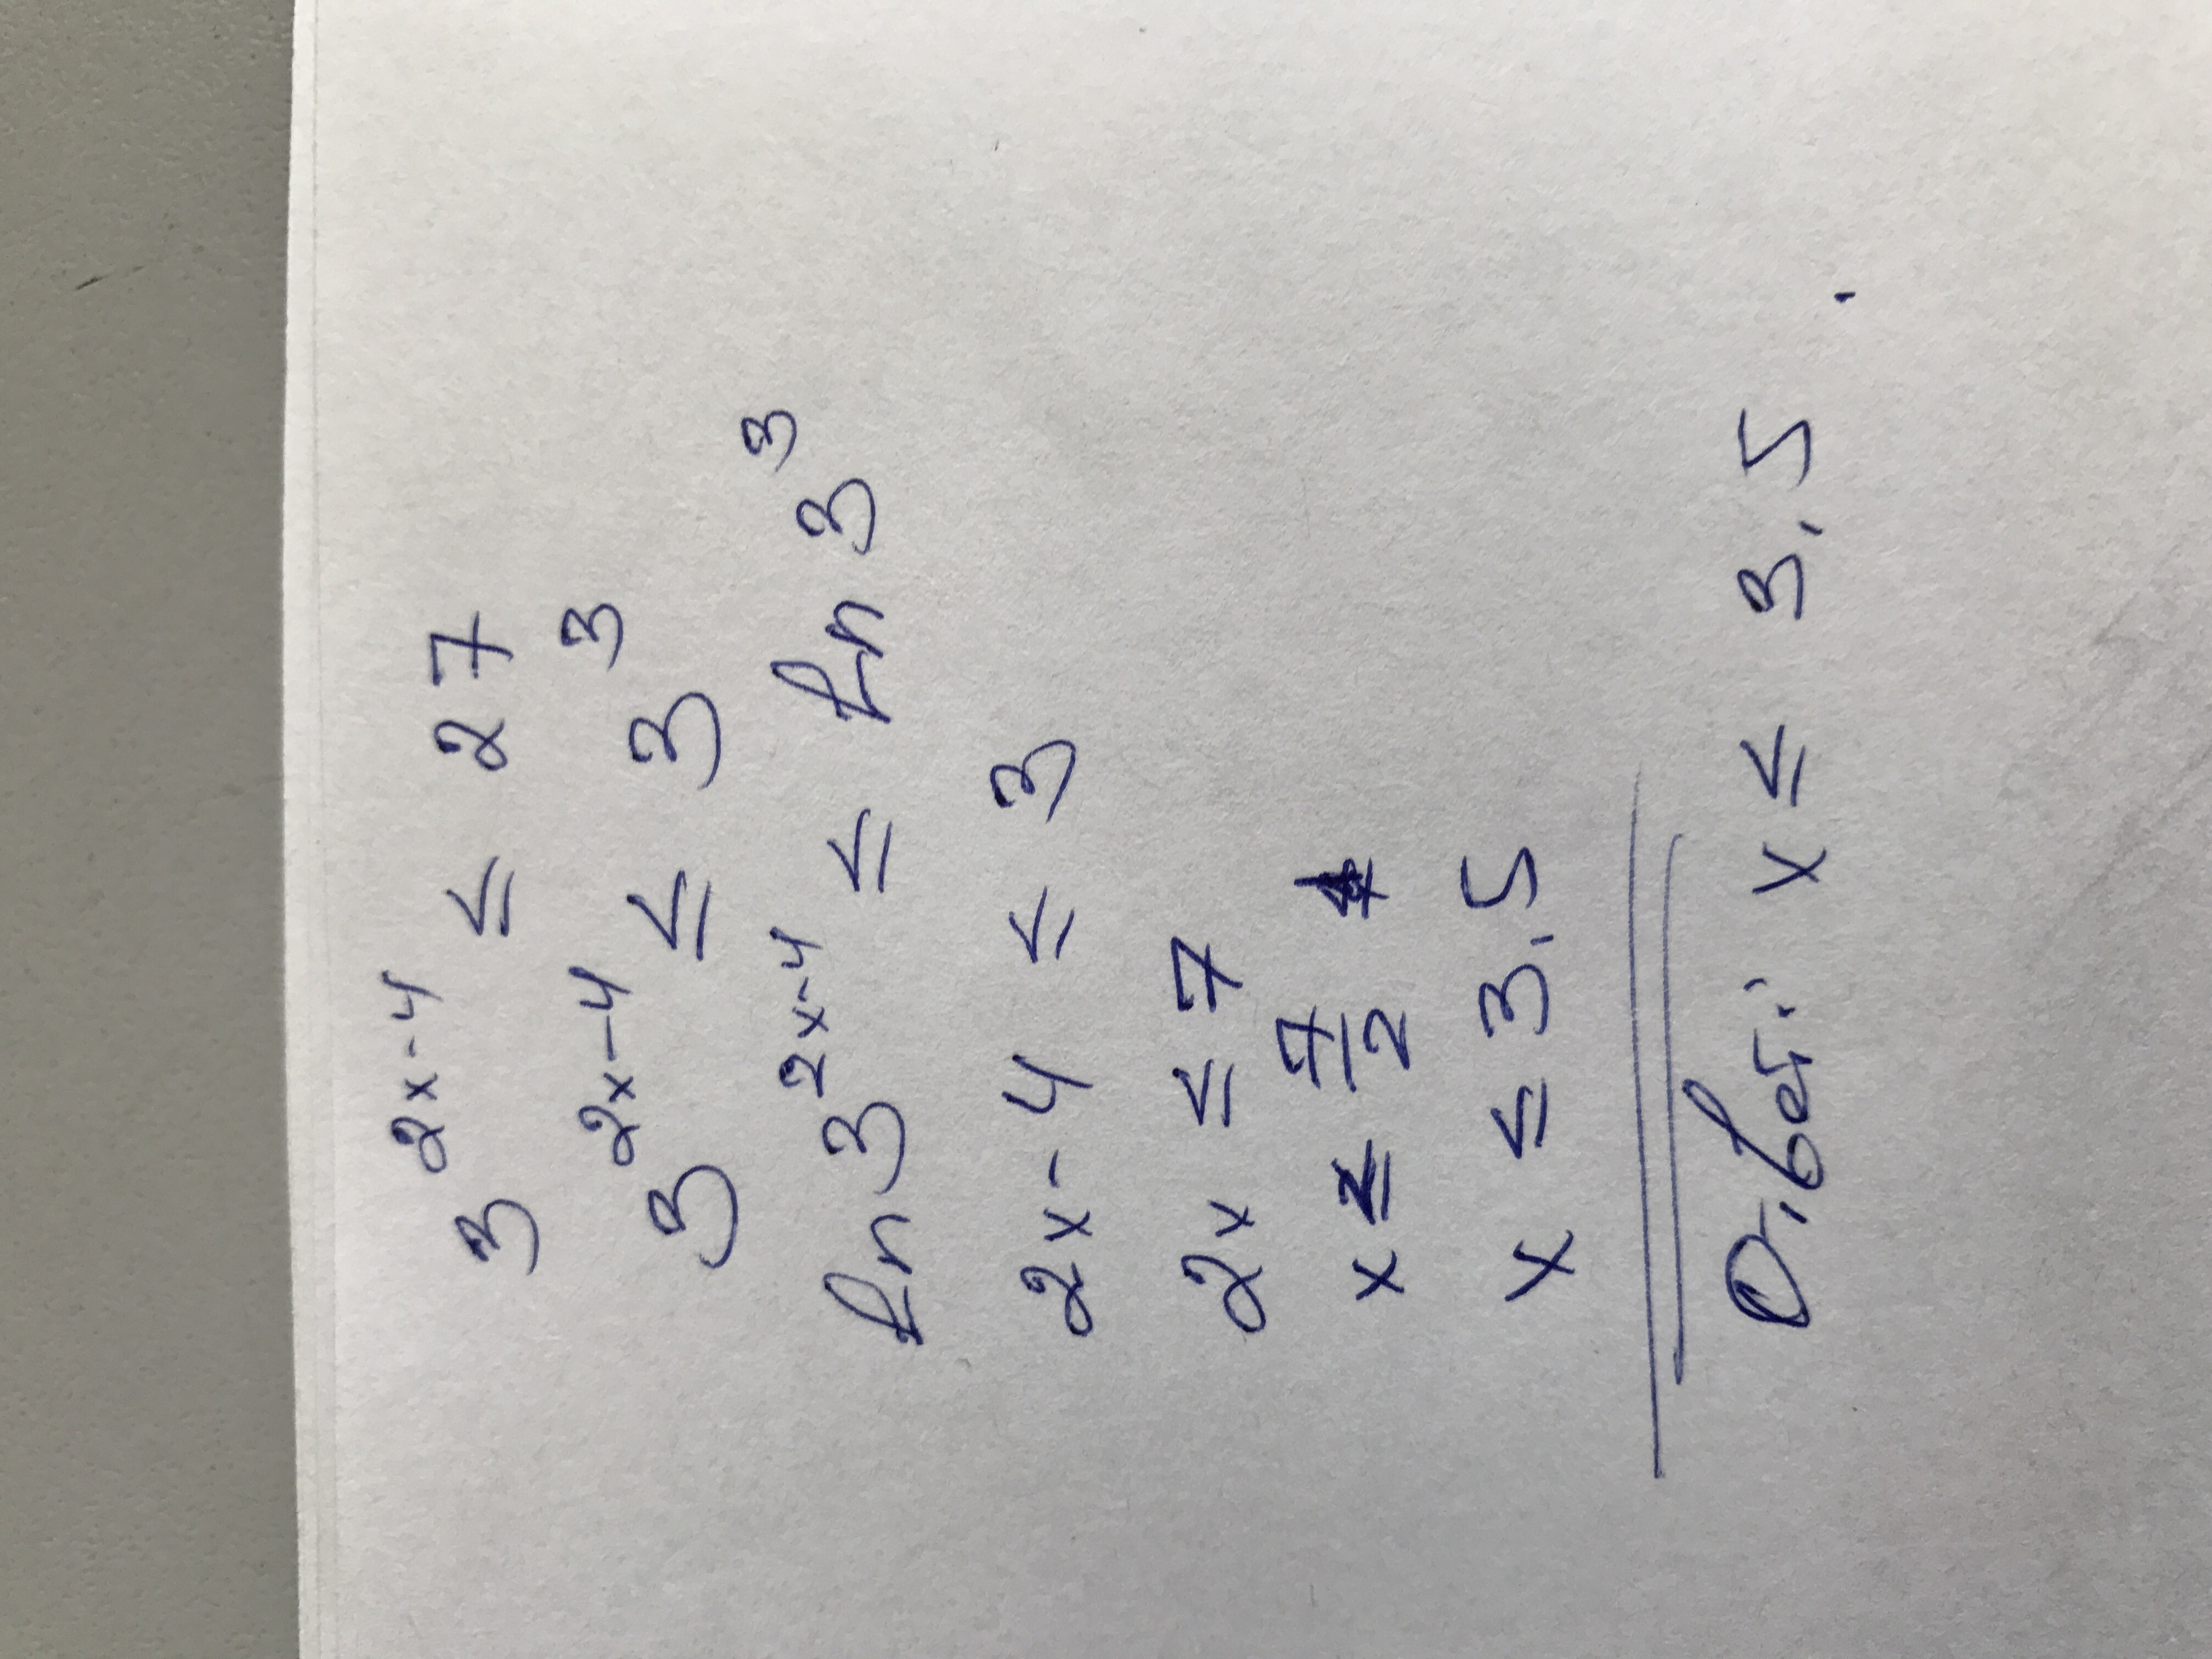 3^{2x-4} ≤ 27
3^{2x-4} ≤ 3^3
ln 3^{2x-4} ≤ ln 3^3
2x - 4 ≤ 3
2x ≤ 7
x ≤ 7/2
x ≤ 3.5
Ответ: x ≤ 3.5.